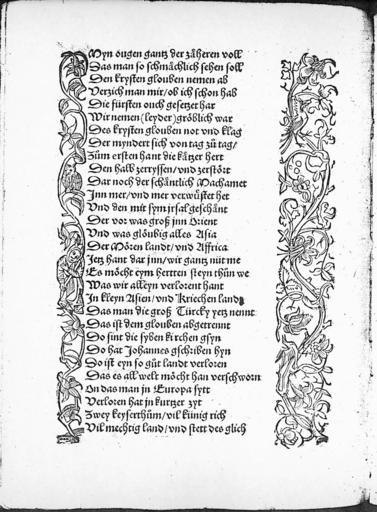 Myn ougen gantz der zäheren voll
Das man so schmächlich sehen soll
Den krysten glouben nemen ab
Verzich man mir/ob ich schon hab
Die fürsten ouch gesetzet har
Wir nemen (leyder) gröblich war
Des krysten glouben not vnd klag
Der myndert sich von tag zů tag/
Zům ersten hant die kätzer hert
Den halb zerryssen/vnd zerstört
Dar noch der schäntlich Machamet
Inn mer/vnd mer verwüstet het
Vnd den mit sym jrsal geschänt
Der vor was groß jnn Orient
Vnd was glöubig alles Asia
Der Mören landt/vnd Affrica
Jetz hant dar jnn/wir gantz nüt me
Es möcht eym hertten steyn thůn we
Was wir alleyn verlorent hant
In kleyn Asien/vnd Kriechen landt
Das man die groß Türcky yetz nennt
Das ist dem glouben abgetrennt
Do sint die syben kirchen gsyn
Do hat Johannes gschriben hyn
Do ist eyn so gůt landt verloren
Das es all welt möcht han verschworn
On das man jn Europa sytt
Verloren hat jn kurtzer zyt
Zwey keyserthům/vil künig rich
Vil mechtig land/vnd stett des glich